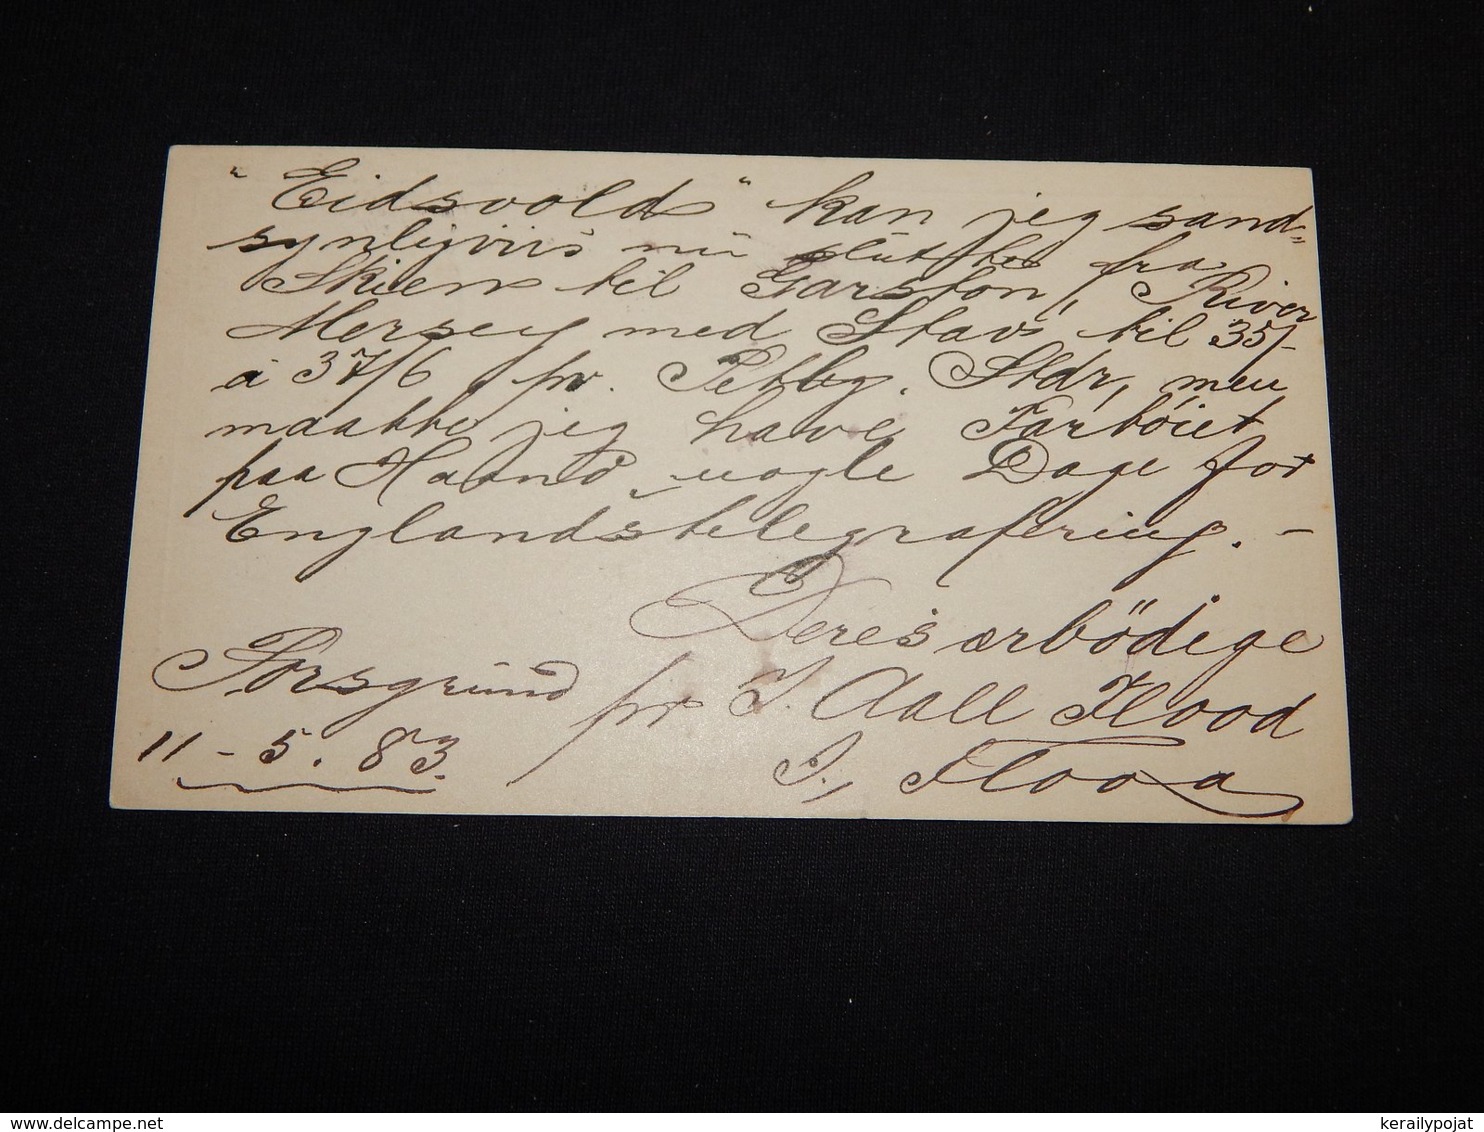 "Eidsvold" kan jeg sand=
synligviis nu slutte fra
Skien til Garston, River
Mersey med Stav til 35/-
à 37/6 pr. Petbg. Stdr, men
maatte jeg have Farböiet
paa Haand nogle Dage for
Englandstelegrafering. -
Deres ærbödige
Porsgrund pr J. Aall Flood
11-5.83. J. Flood
kerailypojat